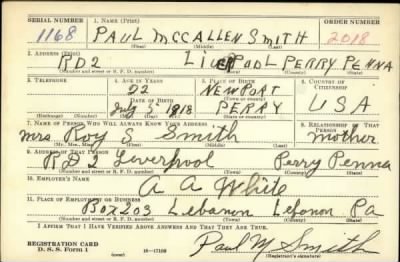 SERIAL NUMBER 1. NAME (Print) ORDER NUMBER
1168 PAUL MCCALLEN SMITH 2018
(First) (Middle) (Last)
2. ADDRESS (Print)
RD2 LIVERPOOL PERRY PENNA
(Number and street or R. F. D. number) (Town) (County) (State)
3. TELEPHONE 4. AGE IN YEARS 5. PLACE OF BIRTH 6. COUNTRY OF CITIZENSHIP
22 NEWPORT
DATE OF BIRTH (Town or county)
July 5 1918 PERRY USA
(Exchange) (Number) (Mo.) (Day) (Yr.) (State or country)
7. NAME OF PERSON WHO WILL ALWAYS KNOW YOUR ADDRESS 8. RELATIONSHIP OF THAT PERSON
Mrs. Roy S Smith mother
(Mr., Mrs., Miss) (First) (Middle) (Last)
9. ADDRESS OF THAT PERSON
RD 2 Liverpool Perry Penna
(Number and street or R. F. D. number) (Town) (County) (State)
10. EMPLOYER'S NAME
A A White
11. PLACE OF EMPLOYMENT OR BUSINESS
Box 203 Lebanon Lebanon Pa
(Number and street or R. F. D. number) (Town) (County) (State)
I AFFIRM THAT I HAVE VERIFIED ABOVE ANSWERS AND THAT THEY ARE TRUE.
REGISTRATION CARD
D. S. S. Form 1 16-17105 Paul M Smith
(Registrant's signature)